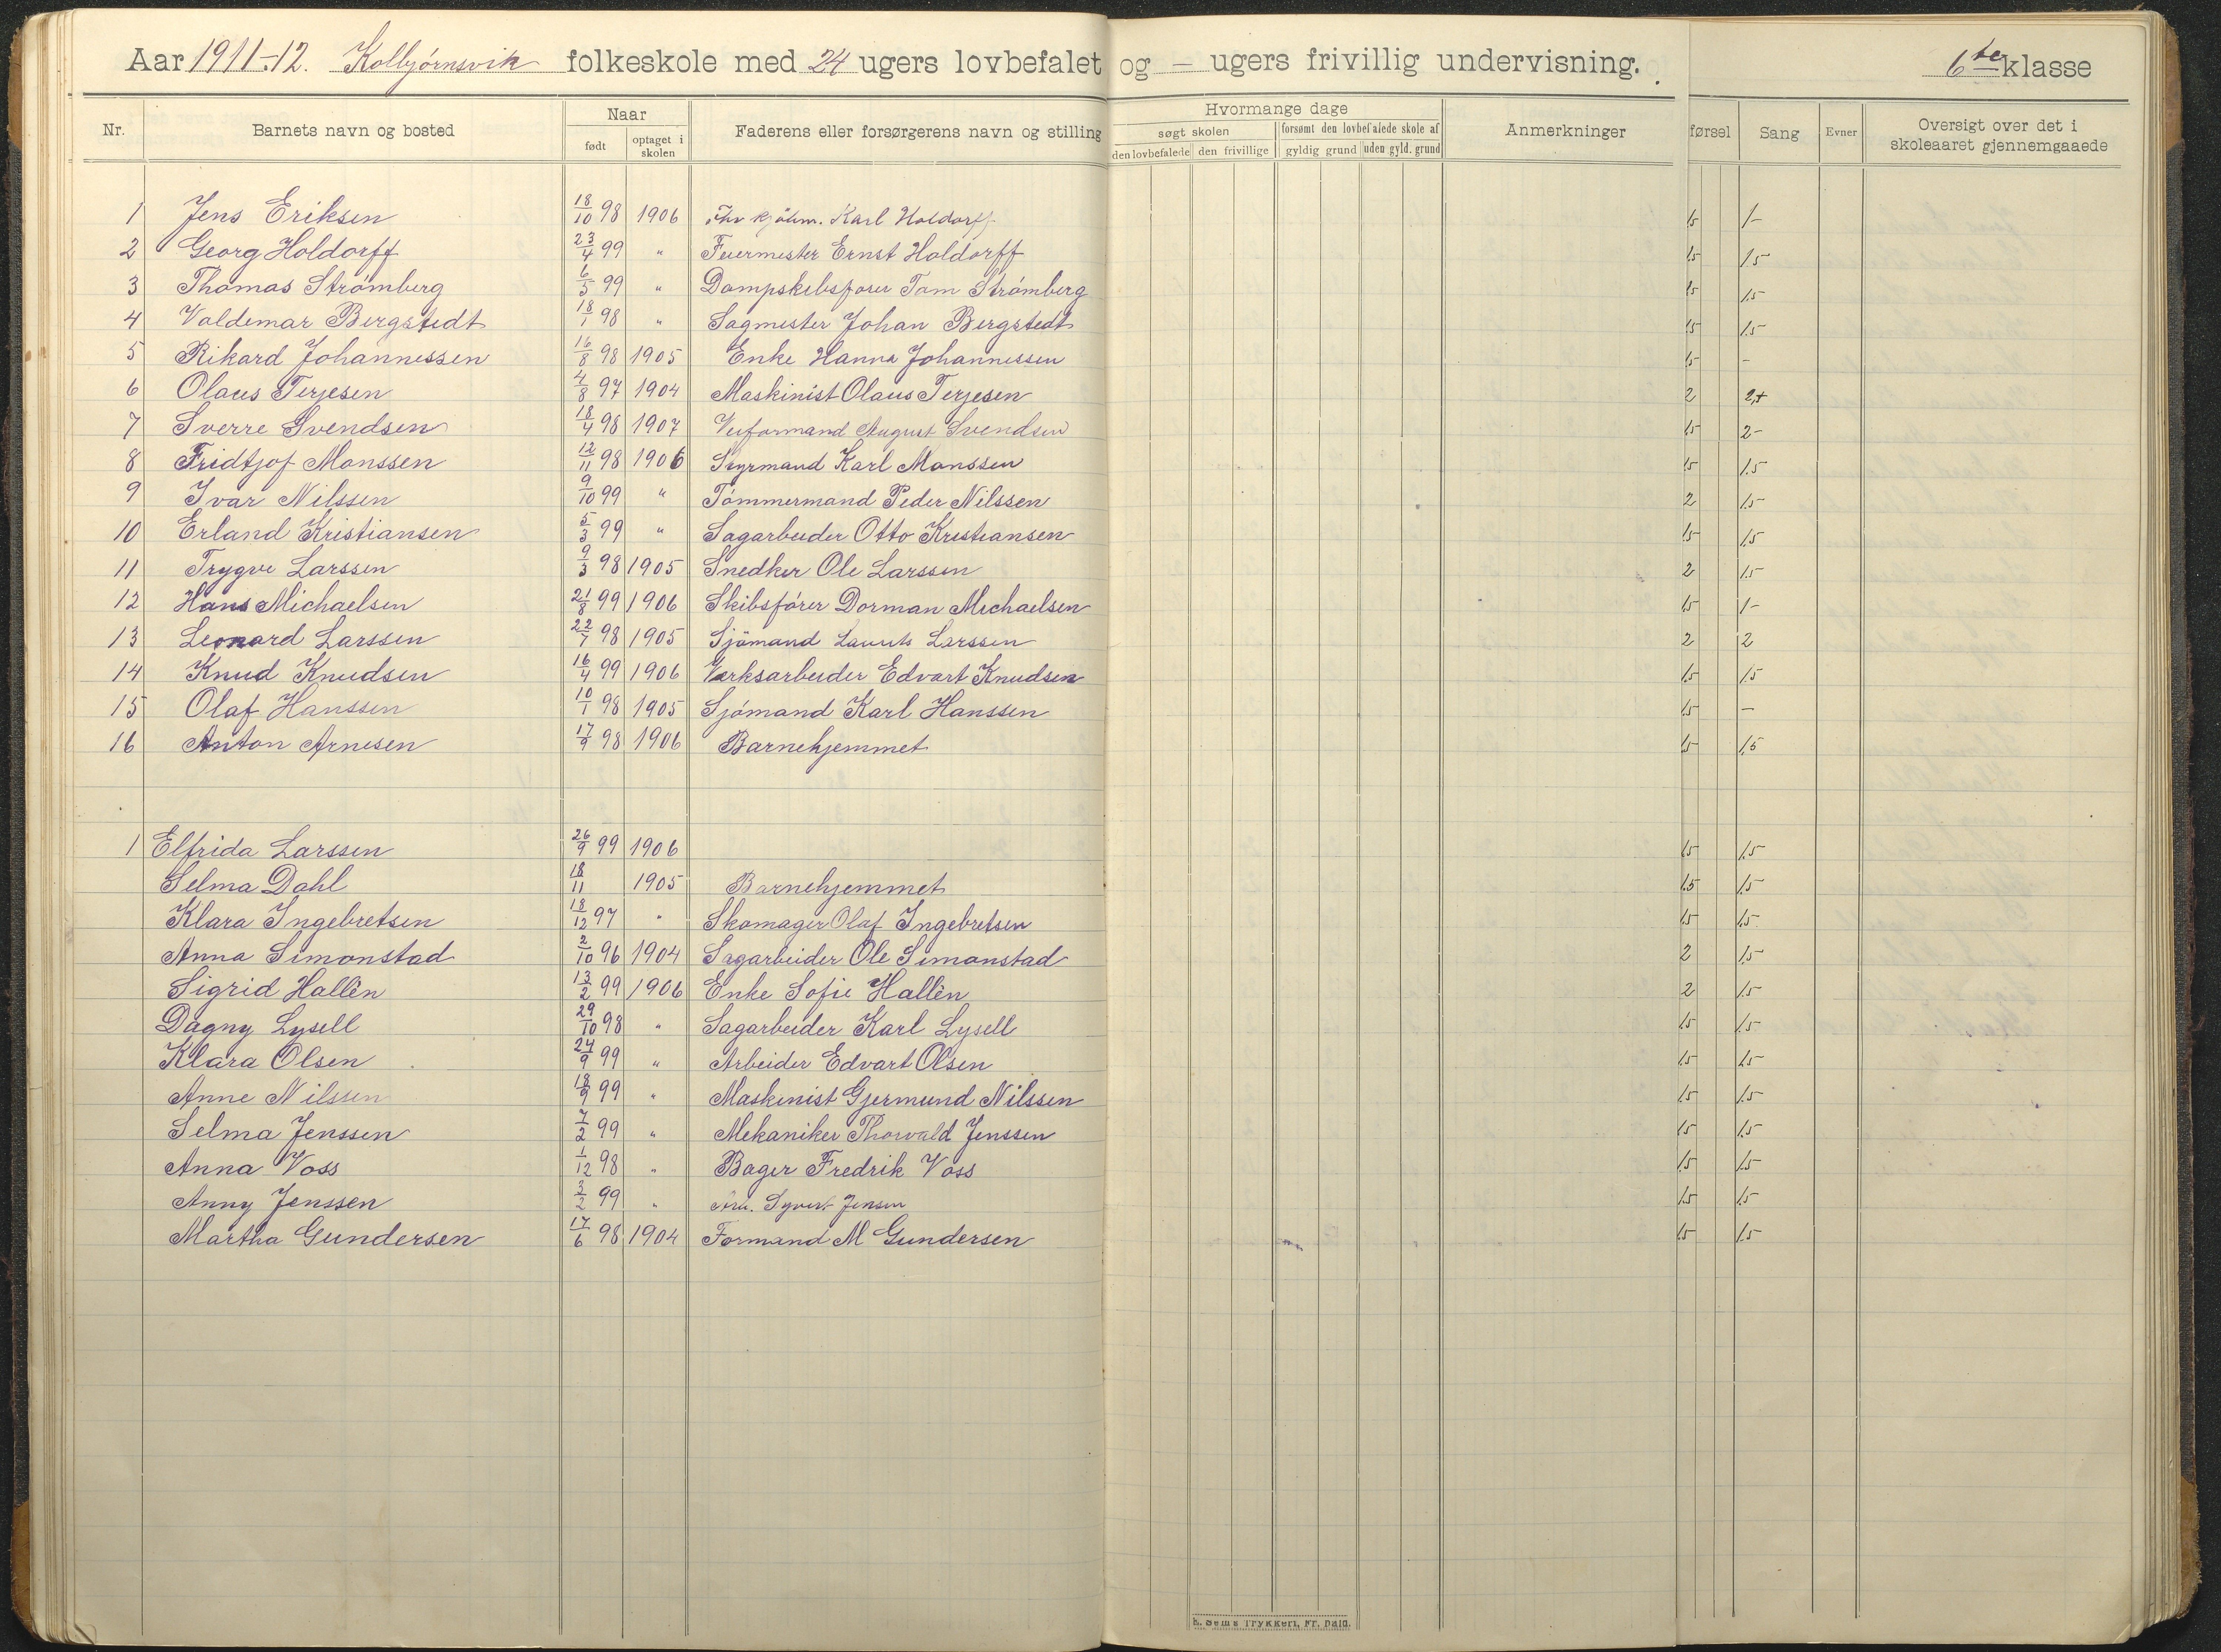 Aar 1911-12. Kolbjørnsvik folkeskole med 24 ugers lovbefalet og — ugers frivillig undervisning. 6te klasse
Nr. Barnets navn og bosted Naar født optaget i skolen Faderens eller forsørgerens navn og stilling Hvormange dage søgt skolen den lovbefalede den frivillige forsømt den lovbefalede skole af gyldig grund uden gyld. grund Anmerkninger førsel Sang Evner Oversigt over det i skoleaaret gjennemgaaede
1 Jens Eriksen 18/10 98 1906 Karl Holdorff 1.5 1-
2 Georg Holdorff 23/4 99 " Feiermester Ernst Holdorff 1.5 1.5
3 Thomas Strømberg 6/5 99 " Dampskibsfører Tom Strømberg 1.5 1.5
4 Valdemar Bergstedt 18/1 98 " Sagmester Johan Bergstedt 1.5 1.5
5 Rikard Johannessen 16/8 98 1905 Enke Hanna Johannessen 1.5 -
6 Olaus Terjesen 4/8 97 1904 Maskinist Olaus Terjesen 2 2+
7 Sverre Svendsen 18/4 98 1907 August Svendsen 1.5 2-
8 Fridtjof Monssen 12/11 98 1906 Styrmand Karl Monssen 1.5 1.5
9 Ivar Nilssen 9/10 99 " Tømmermand Peder Nilssen 2 1.5
10 Erland Kristiansen 5/3 99 " Sagarbeider Otto Kristiansen 1.5 1.5
11 Trygve Larssen 9/3 98 1905 Snedker Ole Larssen 2 1.5
12 Hans Michaelsen 21/8 99 1906 Skibsfører Dorman Michaelsen 1.5 1-
13 Leonard Larssen 22/7 98 1905 Sjømand Laurits Larssen 2 2
14 Knud Knudsen 16/4 99 1906 Værksarbeider Edvart Knudsen 1.5 1.5
15 Olaf Hanssen 10/1 98 1905 Sjømand Karl Hanssen 1.5 -
16 Anton Arnesen 17/9 98 1906 Barnehjemmet 1.5 1.5
1 Elfrida Larssen 26/9 99 1906 1.5 1.5
Selma Dahl 18/11 1905 Barnehjemmet 1.5 1.5
Klara Ingebretsen 18/12 97 " Skomager Olaf Ingebretsen 1.5 1.5
Anna Simonstad 2/10 96 1904 Sagarbeider Ole Simonstad 2 1.5
Sigrid Hallèn 13/2 99 1906 Enke Sofie Hallèn 2 1.5
Dagny Lysell 29/10 98 " Sagarbeider Karl Lysell 1.5 1.5
Klara Olsen 27/9 99 " Arbeider Edvart Olsen 1.5 1.5
Anne Nilssen 18/9 99 " Maskinist Gjermund Nilssen 1.5 1.5
Selma Jenssen 7/2 99 " Mekaniker Thorvald Jenssen 1.5 1.5
Anna Voss 1/12 98 " Bager Fredrik Voss 1.5 1.5
Anny Jenssen 3/2 99 " Syvert Jensen 1.5 1.5
Martha Gundersen 17/6 98 1904 Formand M Gundersen 1.5 1.5